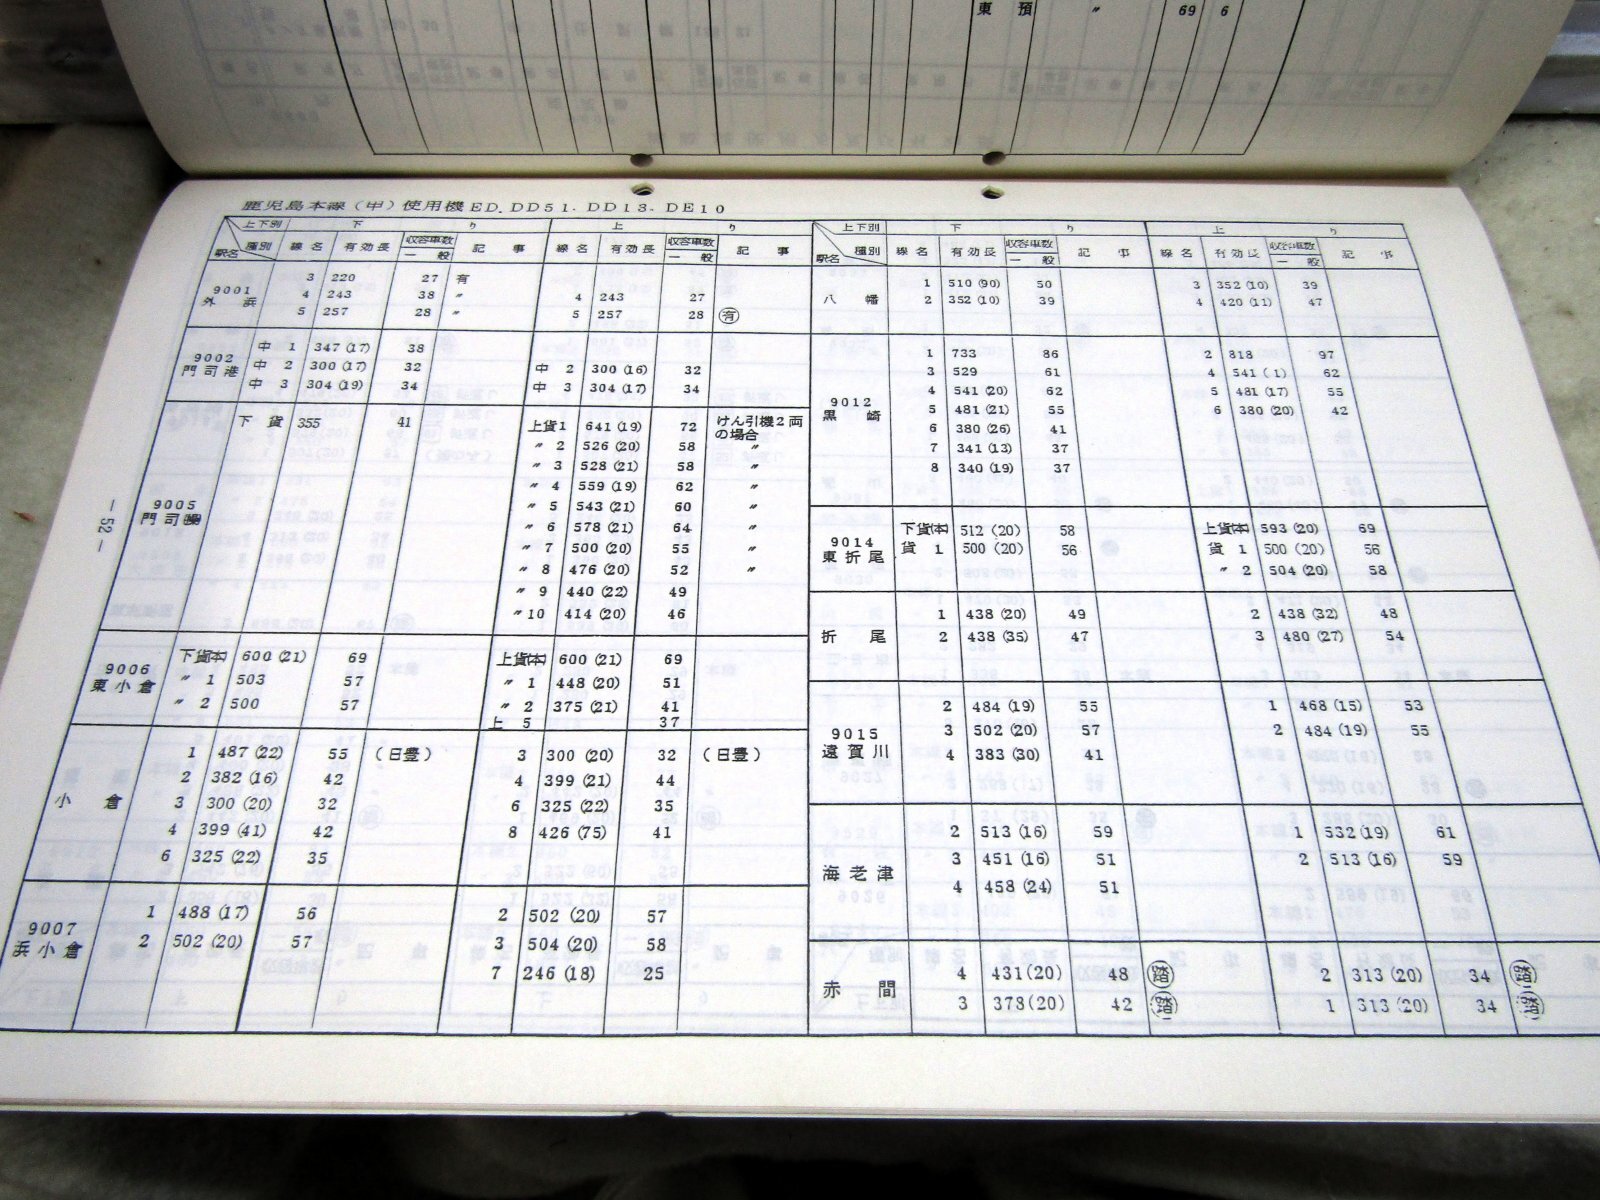 東 預 〃 69 6
鹿児島本線（甲）使用機ED. DD51. DD13. DE10
上下別 下 り 上 り
種別 線名 有効長 収容車数 記 事 線名 有効長 収容車数 記 事
駅名 一 般 一 般
9001 外 浜
3 220 27 有
4 243 38 〃 4 243 27
5 257 28 〃 5 257 28 有
9002 門司港
中 1 347(17) 38
中 2 300(17) 32 中 2 300(16) 32
中 3 304(19) 34 中 3 304(17) 34
9005 門司操
下 貨 355 41 上貨1 641(19) 72 けん引機2両の場合
〃 2 526(20) 58 〃
〃 3 528(21) 58 〃
〃 4 559(19) 62 〃
〃 5 543(21) 60 〃
〃 6 578(21) 64 〃
〃 7 500(20) 55 〃
〃 8 476(20) 52 〃
〃 9 440(22) 49
〃10 414(20) 46
9006 東小倉
下貨(本) 600(21) 69 上貨(本) 600(21) 69
〃 1 503 57 〃 1 448(20) 51
〃 2 500 57 〃 2 375(21) 41
上 5 37
小 倉
1 487(22) 55 （日豊） 3 300(20) 32 （日豊）
2 382(16) 42 4 399(21) 44
3 300(20) 32 6 325(22) 35
4 399(41) 42 8 426(75) 41
6 325(22) 35
9007 浜小倉
1 488(17) 56 2 502(20) 57
2 502(20) 57 3 504(20) 58
7 246(18) 25
上下別 下 り 上 り
種別 線名 有効長 収容車数 記 事 線名 有効長 収容車数 記 事
駅名 一 般 一 般
八 幡
1 510(90) 50 3 352(10) 39
2 352(10) 39 4 420(11) 47
9012 黒 崎
1 733 86 2 818 97
3 529 61 4 541( 1) 62
4 541(20) 62 5 481(17) 55
5 481(21) 55 6 380(20) 42
6 380(26) 41
7 341(13) 37
8 340(19) 37
9014 東折尾
下貨(本) 512(20) 58 上貨(本) 593(20) 69
貨 1 500(20) 56 貨 1 500(20) 56
〃 2 504(20) 58
折 尾
1 438(20) 49 2 438(32) 48
2 438(35) 47 3 480(27) 54
9015 遠賀川
2 484(19) 55 1 468(15) 53
3 502(20) 57 2 484(19) 55
4 383(30) 41
海老津
2 513(16) 59 1 532(19) 61
3 451(16) 51 2 513(16) 59
4 458(24) 51
赤 間
4 431(20) 48 踏 2 313(20) 34 踏
3 378(20) 42 踏 1 313(20) 34 踏
― 52 ―